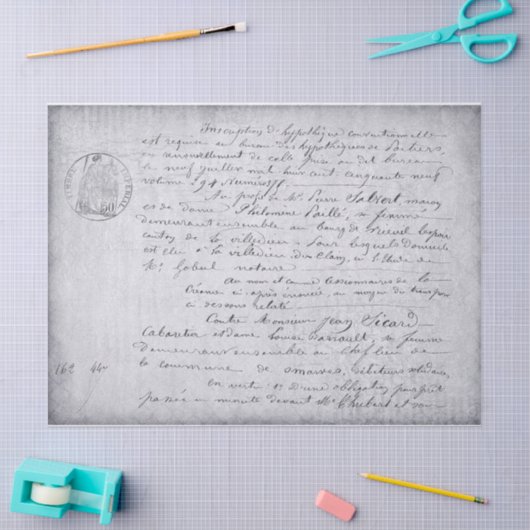 Inscription d'hypothèque conventionnelle
est requise au bureau des hypothèques de Poitiers,
en renouvellement de celle prise au dit bureau
le neuf juillet mil huit cent cinquante neuf
volume 294 Numéro
Au profit de Mr Pierre
et de dame Philomène Paillé, sa femme
demeurant ensemble au bourg de
canton de La villedieu Pour lesquels domicile
est élu à La villedieu du Clain, en l'étude de
Me notaire
Au nom et comme cessionnaires de la
Créance ci-après énoncée, au moyen du transport
ci dessous relaté.
Contre Monsieur Jean Sicard
Cabaretier et dame Louise sa femme
demeurant ensemble au chef lieu de
la commune de débiteurs solidaires
En vertu 1º d'une obligation pour prêt
passée en minute devant Me et son
50